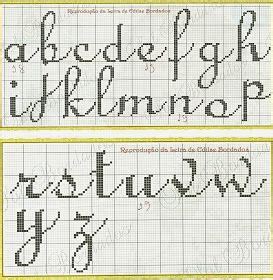 Reprodução da Letra de Célias Bordados
a b c d e f g h
i j k l m n o p
Reprodução da Letra de Célias Bordados
r s t u v w
y z